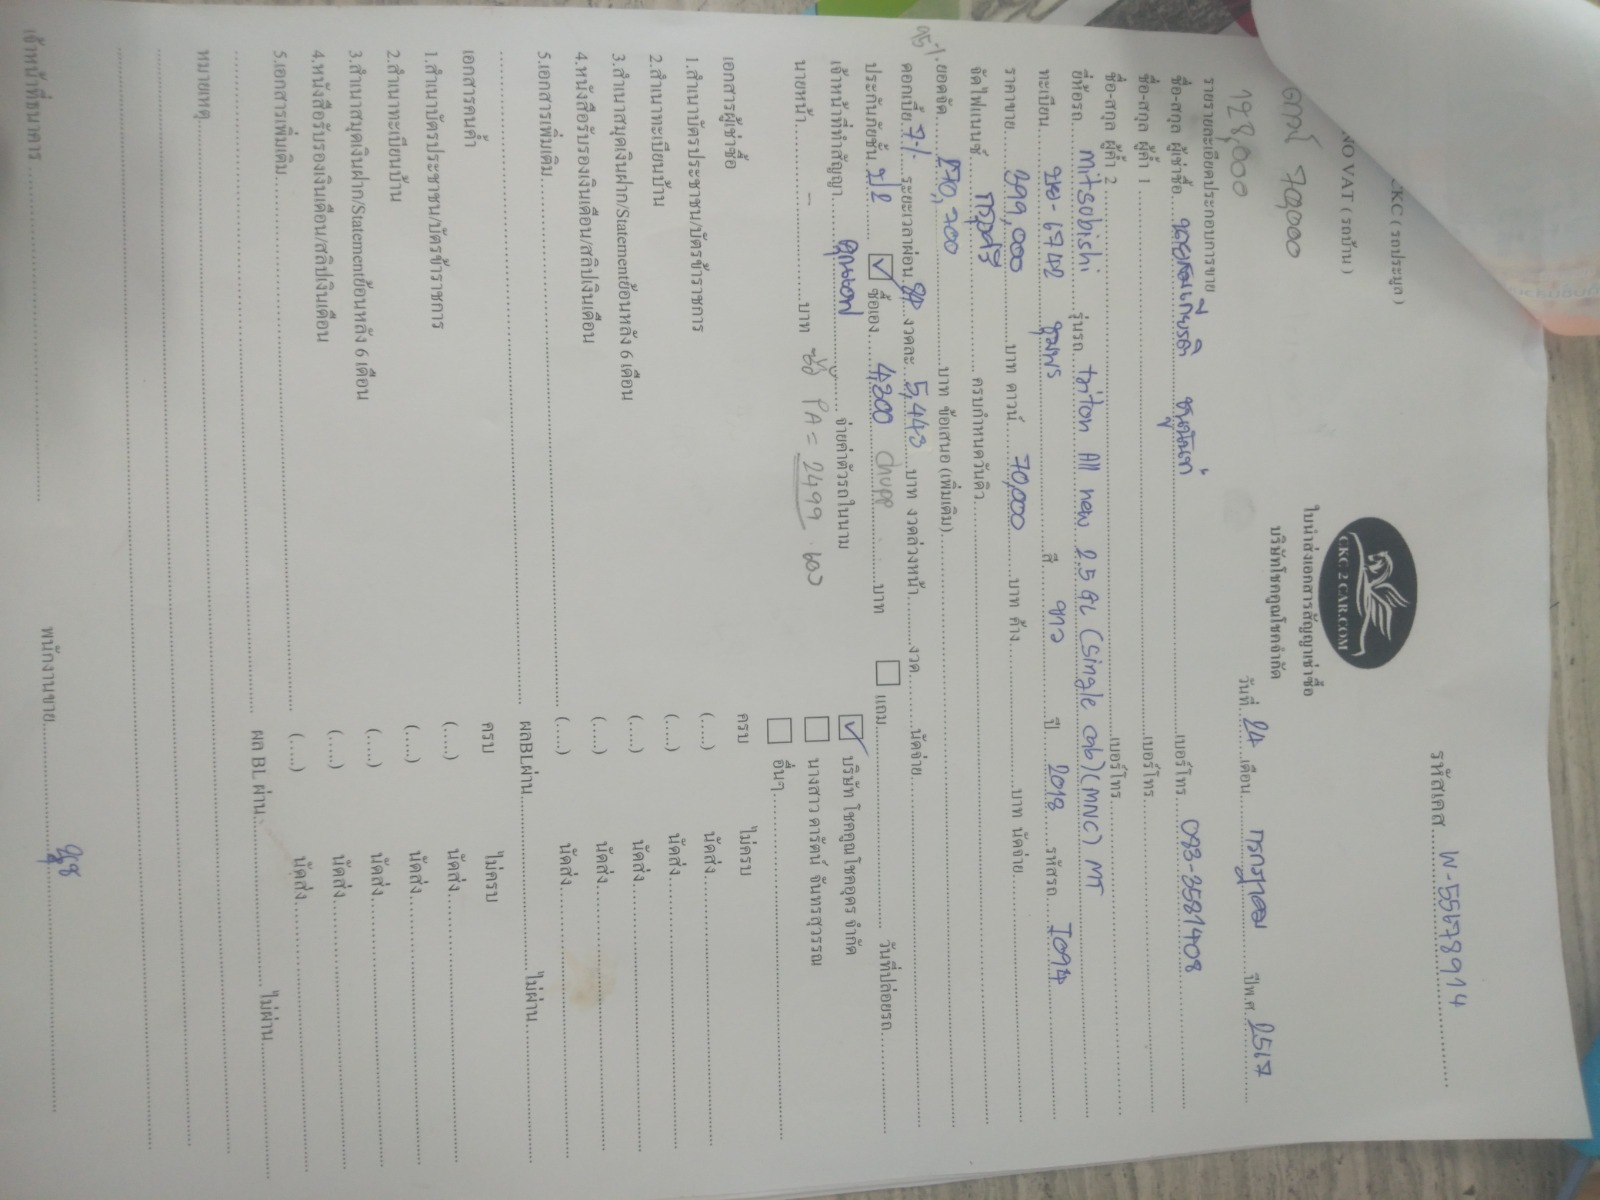 CKC ( รถประมูล )
NO VAT ( รถบ้าน )
รหัสเคส
ดาวน์ 70,000
198,000
CKC 2 CAR.COM
ใบนำส่งเอกสารสัญญาเช่าซื้อ
บริษัทโชคคูณโชคจำกัด
วันที่ 24 เดือน กรกฎาคม ปีพ.ศ 2567
รายรายละเอียดประกอบการขาย
ชื่อ-สกุล ผู้เช่าซื้อ เบอร์โทร 093-3581408
ชื่อ-สกุล ผู้ค้ำ 1 เบอร์โทร
ชื่อ-สกุล ผู้ค้ำ 2 เบอร์โทร
ยี่ห้อรถ mitsubishi รุ่นรถ triton All new 2.5 GL (Single cab) (MNC) MT
ทะเบียน ชุมพร สี ขาว ปี 2018 รหัสรถ
ราคาขาย 299,000 บาท ดาวน์ 70,000 บาท ค้าง บาท นัดจ่าย
จัดไฟแนนซ์ กรุงศรี ครบกำหนดวันคิว
ยอดจัด 270,700 บาท ข้อเสนอ (เพิ่มเติม)
ดอกเบี้ย 7% ระยะเวลาผ่อน 84 งวดละ 5,443 บาท งวดล่วงหน้า งวด นัดจ่าย
ประกันภัยชั้น ป2 ซื้อเอง 4,200 chupp บาท แถม วันที่ปล่อยรถ
เจ้าหน้าที่ทำสัญญา จ่ายค่าตัวรถในนาม บริษัท โชคคูณโชคอุดร จำกัด
นางสาว ดารัตน์ จันทรสุวรรณ
นายหน้า - บาท ซื้อ PA = 2499 อื่นๆ
เอกสารผู้เช่าซื้อ ครบ ไม่ครบ
1.สำเนาบัตรประชาชน/บัตรข้าราชการ (.....) นัดส่ง
2.สำเนาทะเบียนบ้าน (.....) นัดส่ง
3.สำเนาสมุดเงินฝาก/Statementย้อนหลัง 6 เดือน (.....) นัดส่ง
4.หนังสือรับรองเงินเดือน/สลิปเงินเดือน (.....) นัดส่ง
5.เอกสารเพิ่มเติม (.....) นัดส่ง
ผลBLผ่าน ไม่ผ่าน
เอกสารคนค้ำ ครบ ไม่ครบ
1.สำเนาบัตรประชาชน/บัตรข้าราชการ (.....) นัดส่ง
2.สำเนาทะเบียนบ้าน (.....) นัดส่ง
3.สำเนาสมุดเงินฝาก/Statementย้อนหลัง 6 เดือน (.....) นัดส่ง
4.หนังสือรับรองเงินเดือน/สลิปเงินเดือน (.....) นัดส่ง
5.เอกสารเพิ่มเติม (.....) นัดส่ง
ผล BL ผ่าน ไม่ผ่าน
หมายเหตุ
เจ้าหน้าที่ธนาคาร พนักงานขาย